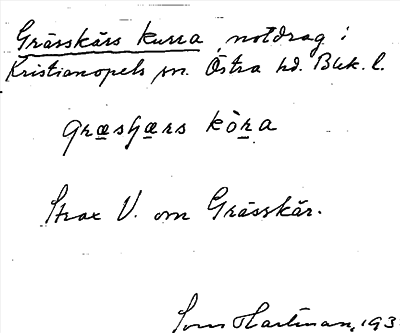 Grässkärs kurra, notdrag i
Kristianopels sn. Östra hd. Blek. l.
græsɧærs kòra
Strax V. om Grässkär.
Hartman, 193